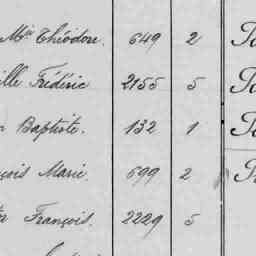 Mie Théodore. 649 2
ille Frédéric 2155 5
Baptiste. 132 1
çois Marie. 699 2
François. 2229 5